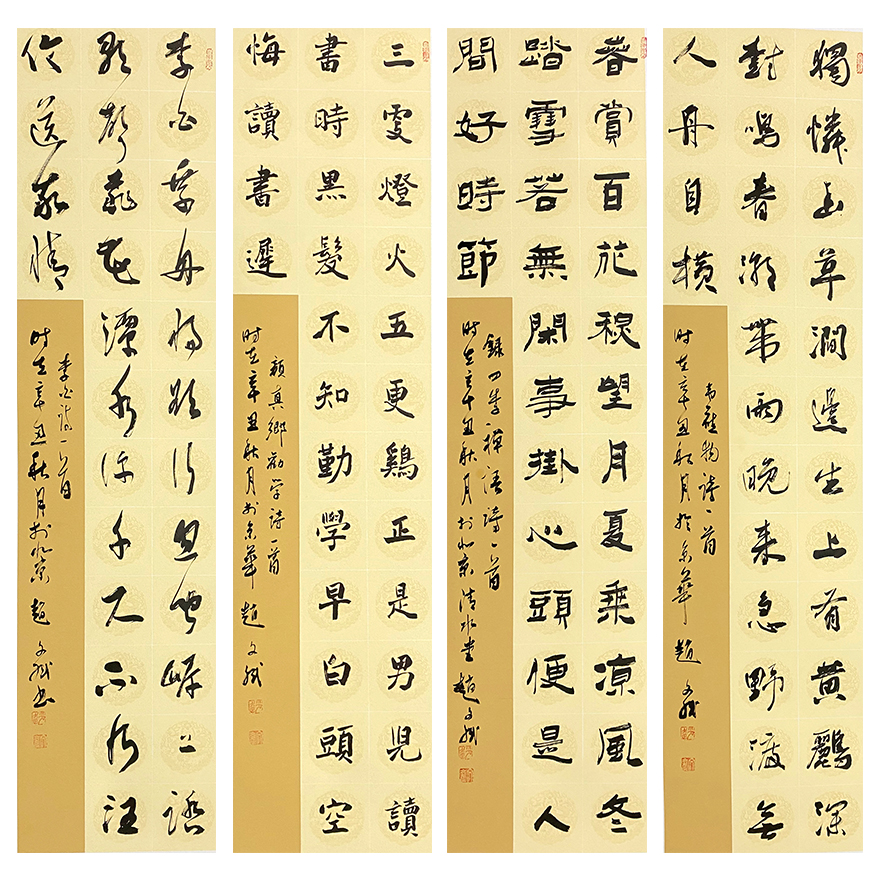 獨憐幽草澗邊生上有黃鸝深
樹鳴春潮帶雨晚來急野渡無
人舟自橫
韋應物詩一首
时在辛丑秋月於京華 趙文
春賞百花秋望月夏乘凉風冬
踏雪若無閑事掛心頭便是人
間好時節
錄四季禪語詩一首
时在辛丑秋月於北京清水堂趙文
三更燈火五更鷄正是男兒讀
書時黑髮不知勤學早白頭空
悔讀書遲
顏真卿勸学詩一首
时在辛丑秋月於京華 趙文
李白乘舟將欲行忽聞岸上踏
歌聲桃花潭水深千尺不及汪
倫送我情
李白詩一首
时在辛丑秋月於北京 趙文 書